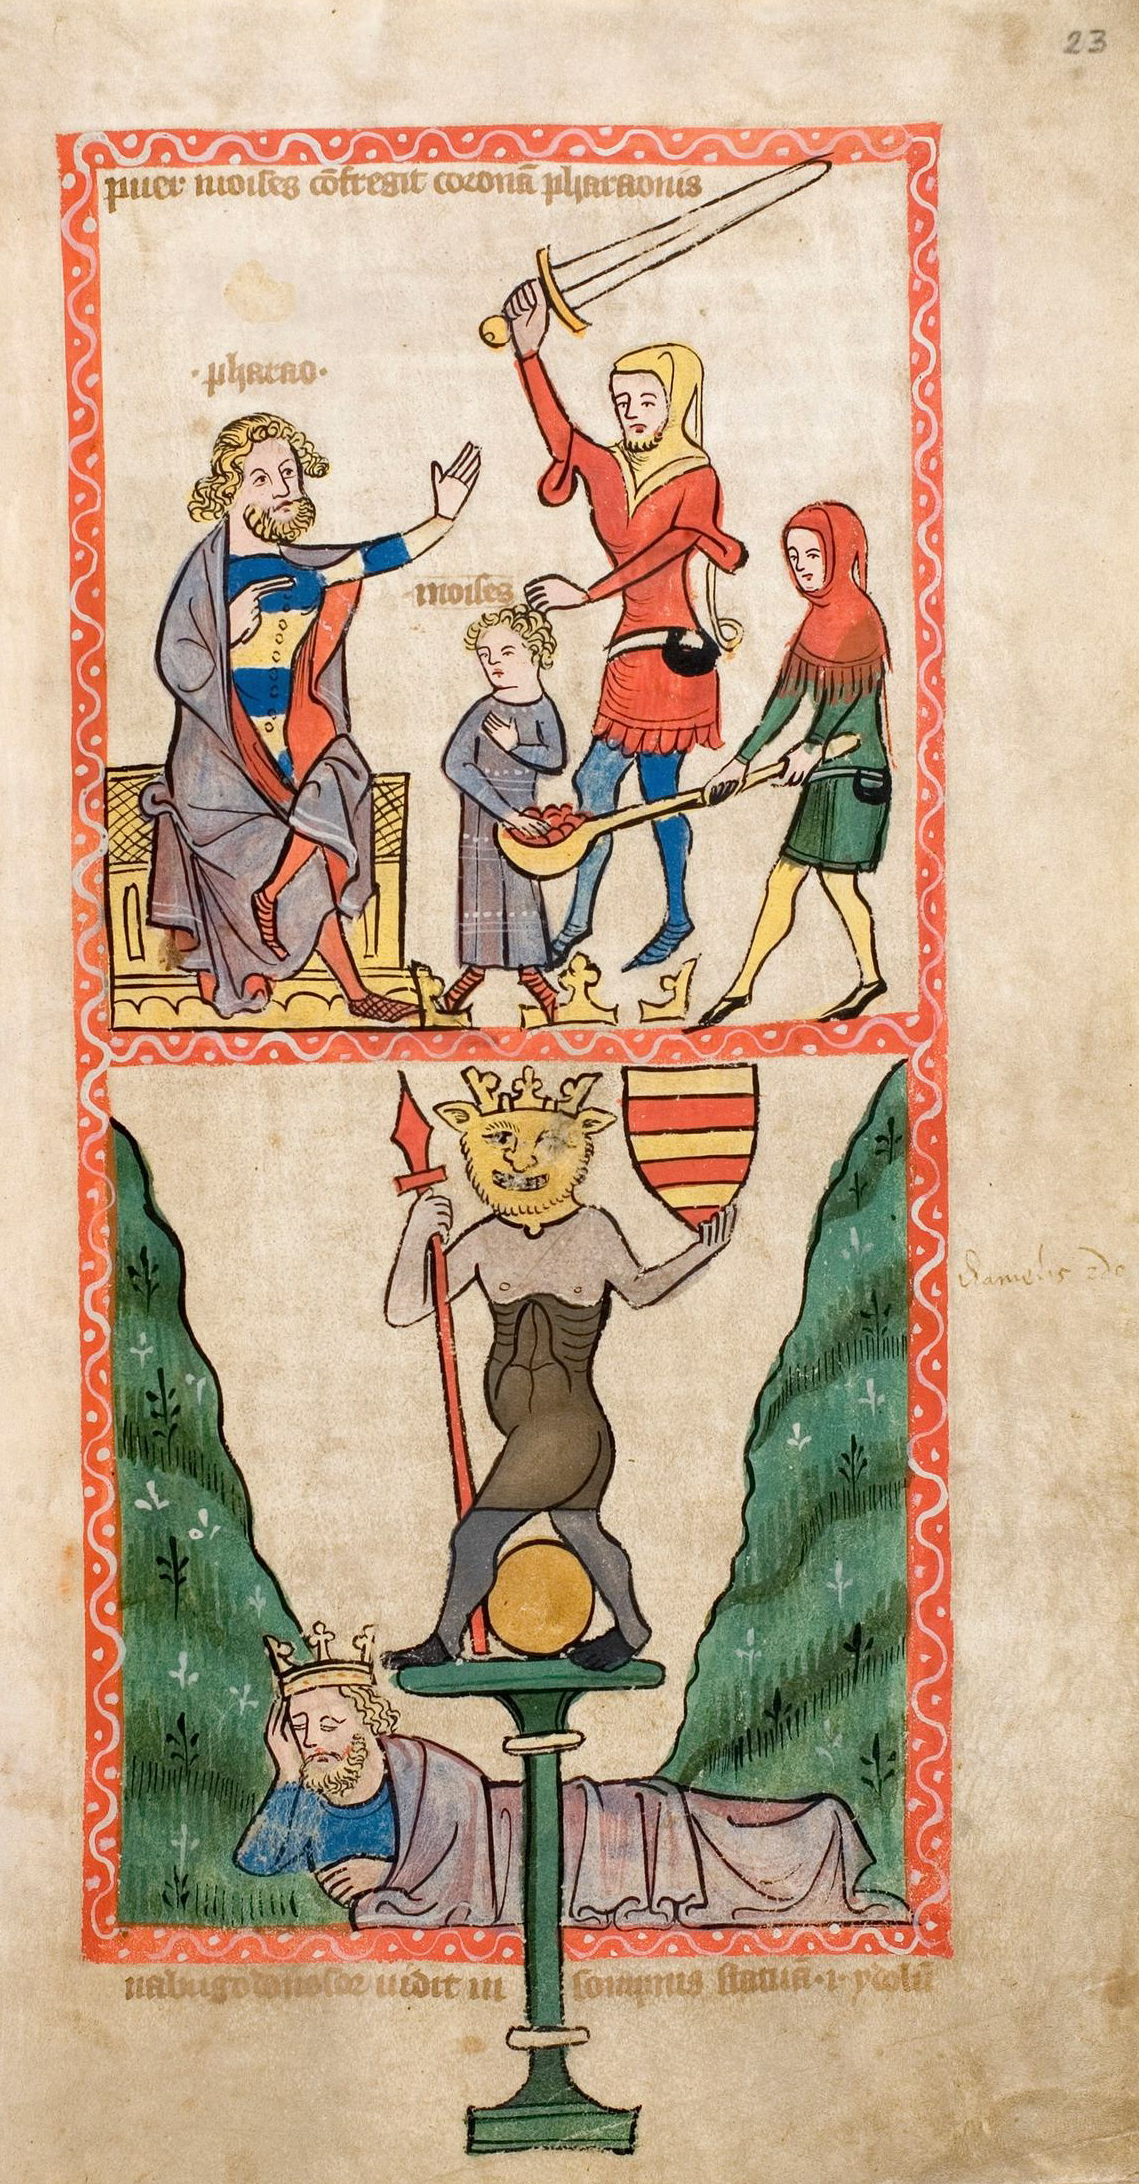 23
puer moises cōfregit coronā pharaonis
·pharao·
moises
nabugodonosor uidit in sompnis statuā·⁊·ydolū